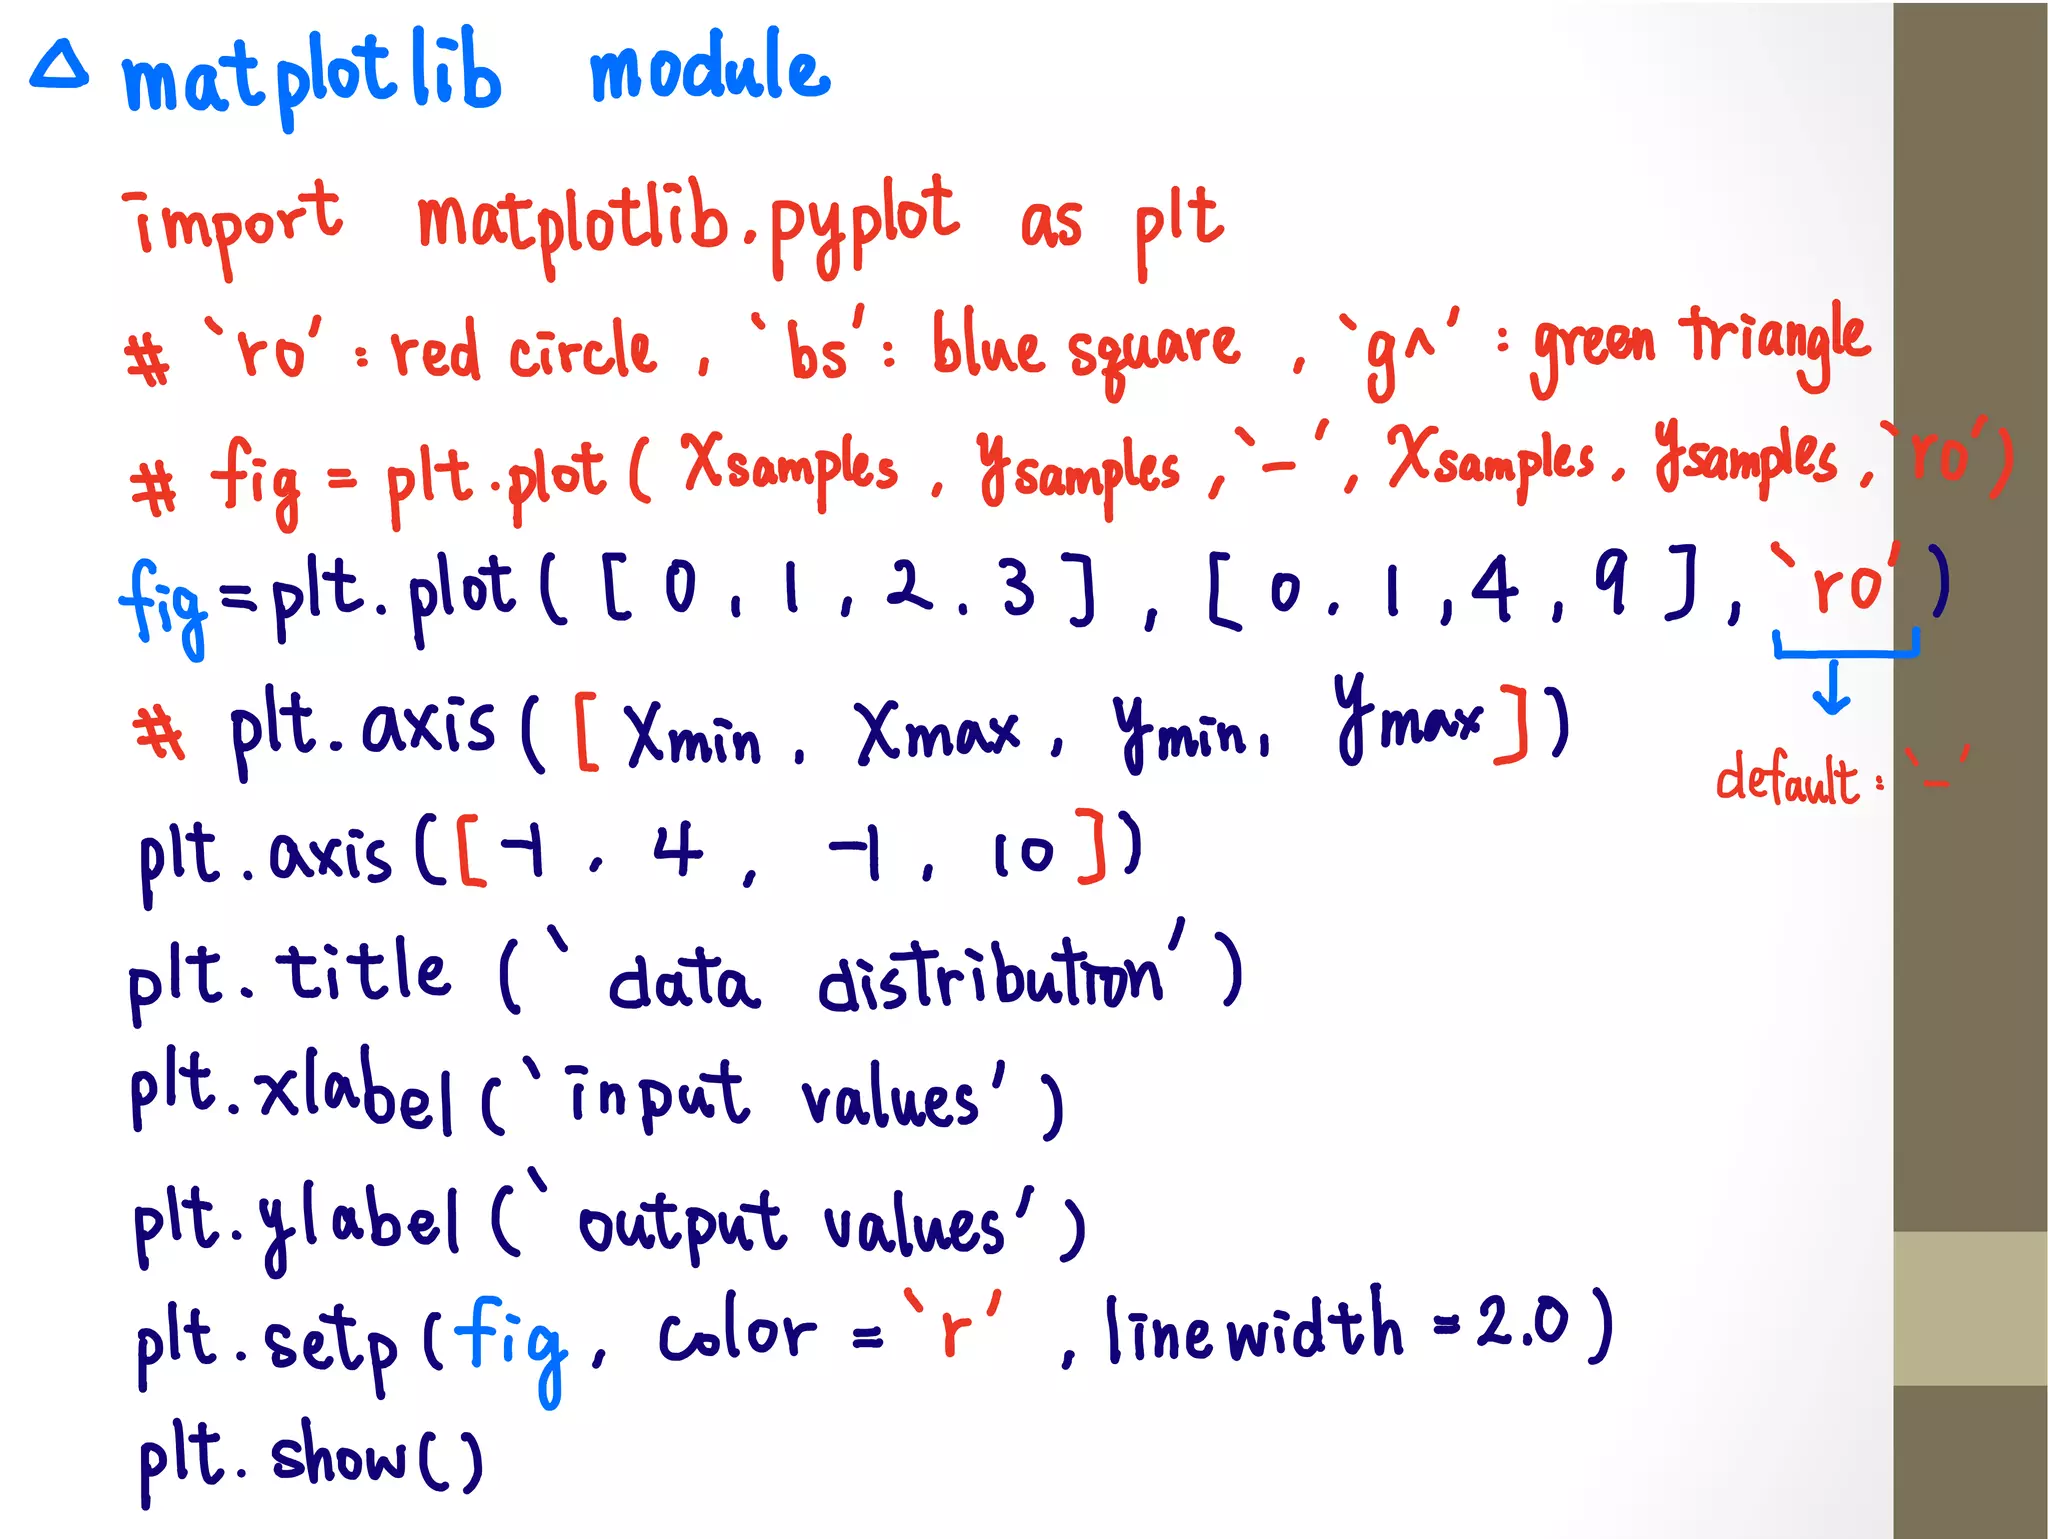 △ matplotlib module
import matplotlib.pyplot as plt
# `ro' : red circle , `bs' : blue square , `g^' : green triangle
# fig = plt.plot( Xsamples , ysamples , `-' , Xsamples , ysamples , `ro' )
fig = plt.plot ( [ 0 , 1 , 2 , 3 ] , [ 0 , 1 , 4 , 9 ] , `ro' )
# plt.axis ( [ Xmin , Xmax , ymin , ymax ] )
default : `-'
plt.axis ( [ -1 , 4 , -1 , 10 ] )
plt.title ( `data distribution' )
plt.xlabel ( `input values' )
plt.ylabel ( `output values' )
plt.setp ( fig , color = `r' , linewidth = 2.0 )
plt.show()